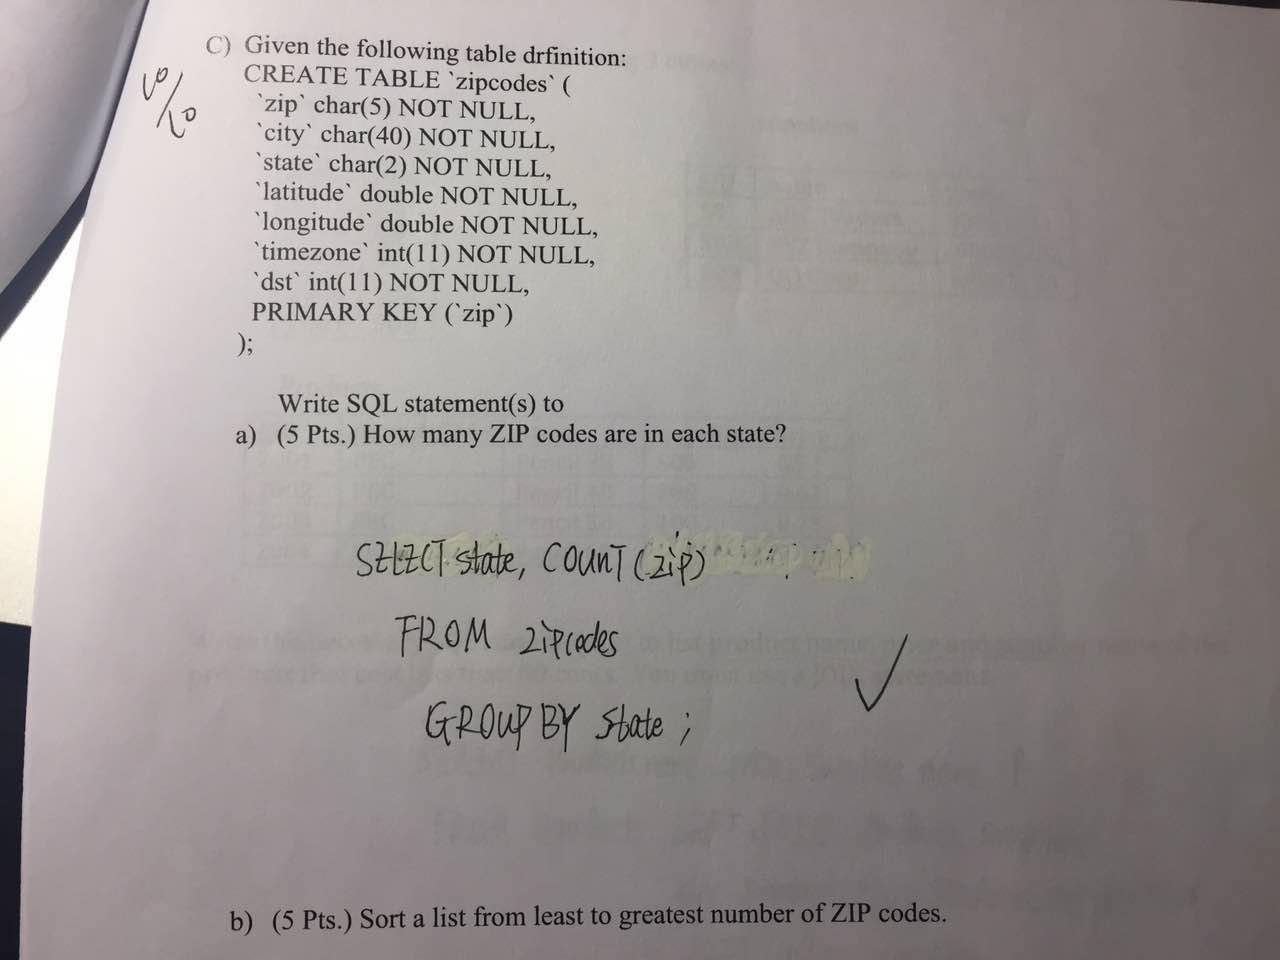 C) Given the following table drfinition:
CREATE TABLE `zipcodes` (
`zip` char(5) NOT NULL,
`city` char(40) NOT NULL,
`state` char(2) NOT NULL,
`latitude` double NOT NULL,
`longitude` double NOT NULL,
`timezone` int(11) NOT NULL,
`dst` int(11) NOT NULL,
PRIMARY KEY (`zip`)
);
Write SQL statement(s) to
a) (5 Pts.) How many ZIP codes are in each state?
SELECT state, COUNT (zip)
FROM zipcodes
GROUP BY state ;
b) (5 Pts.) Sort a list from least to greatest number of ZIP codes.